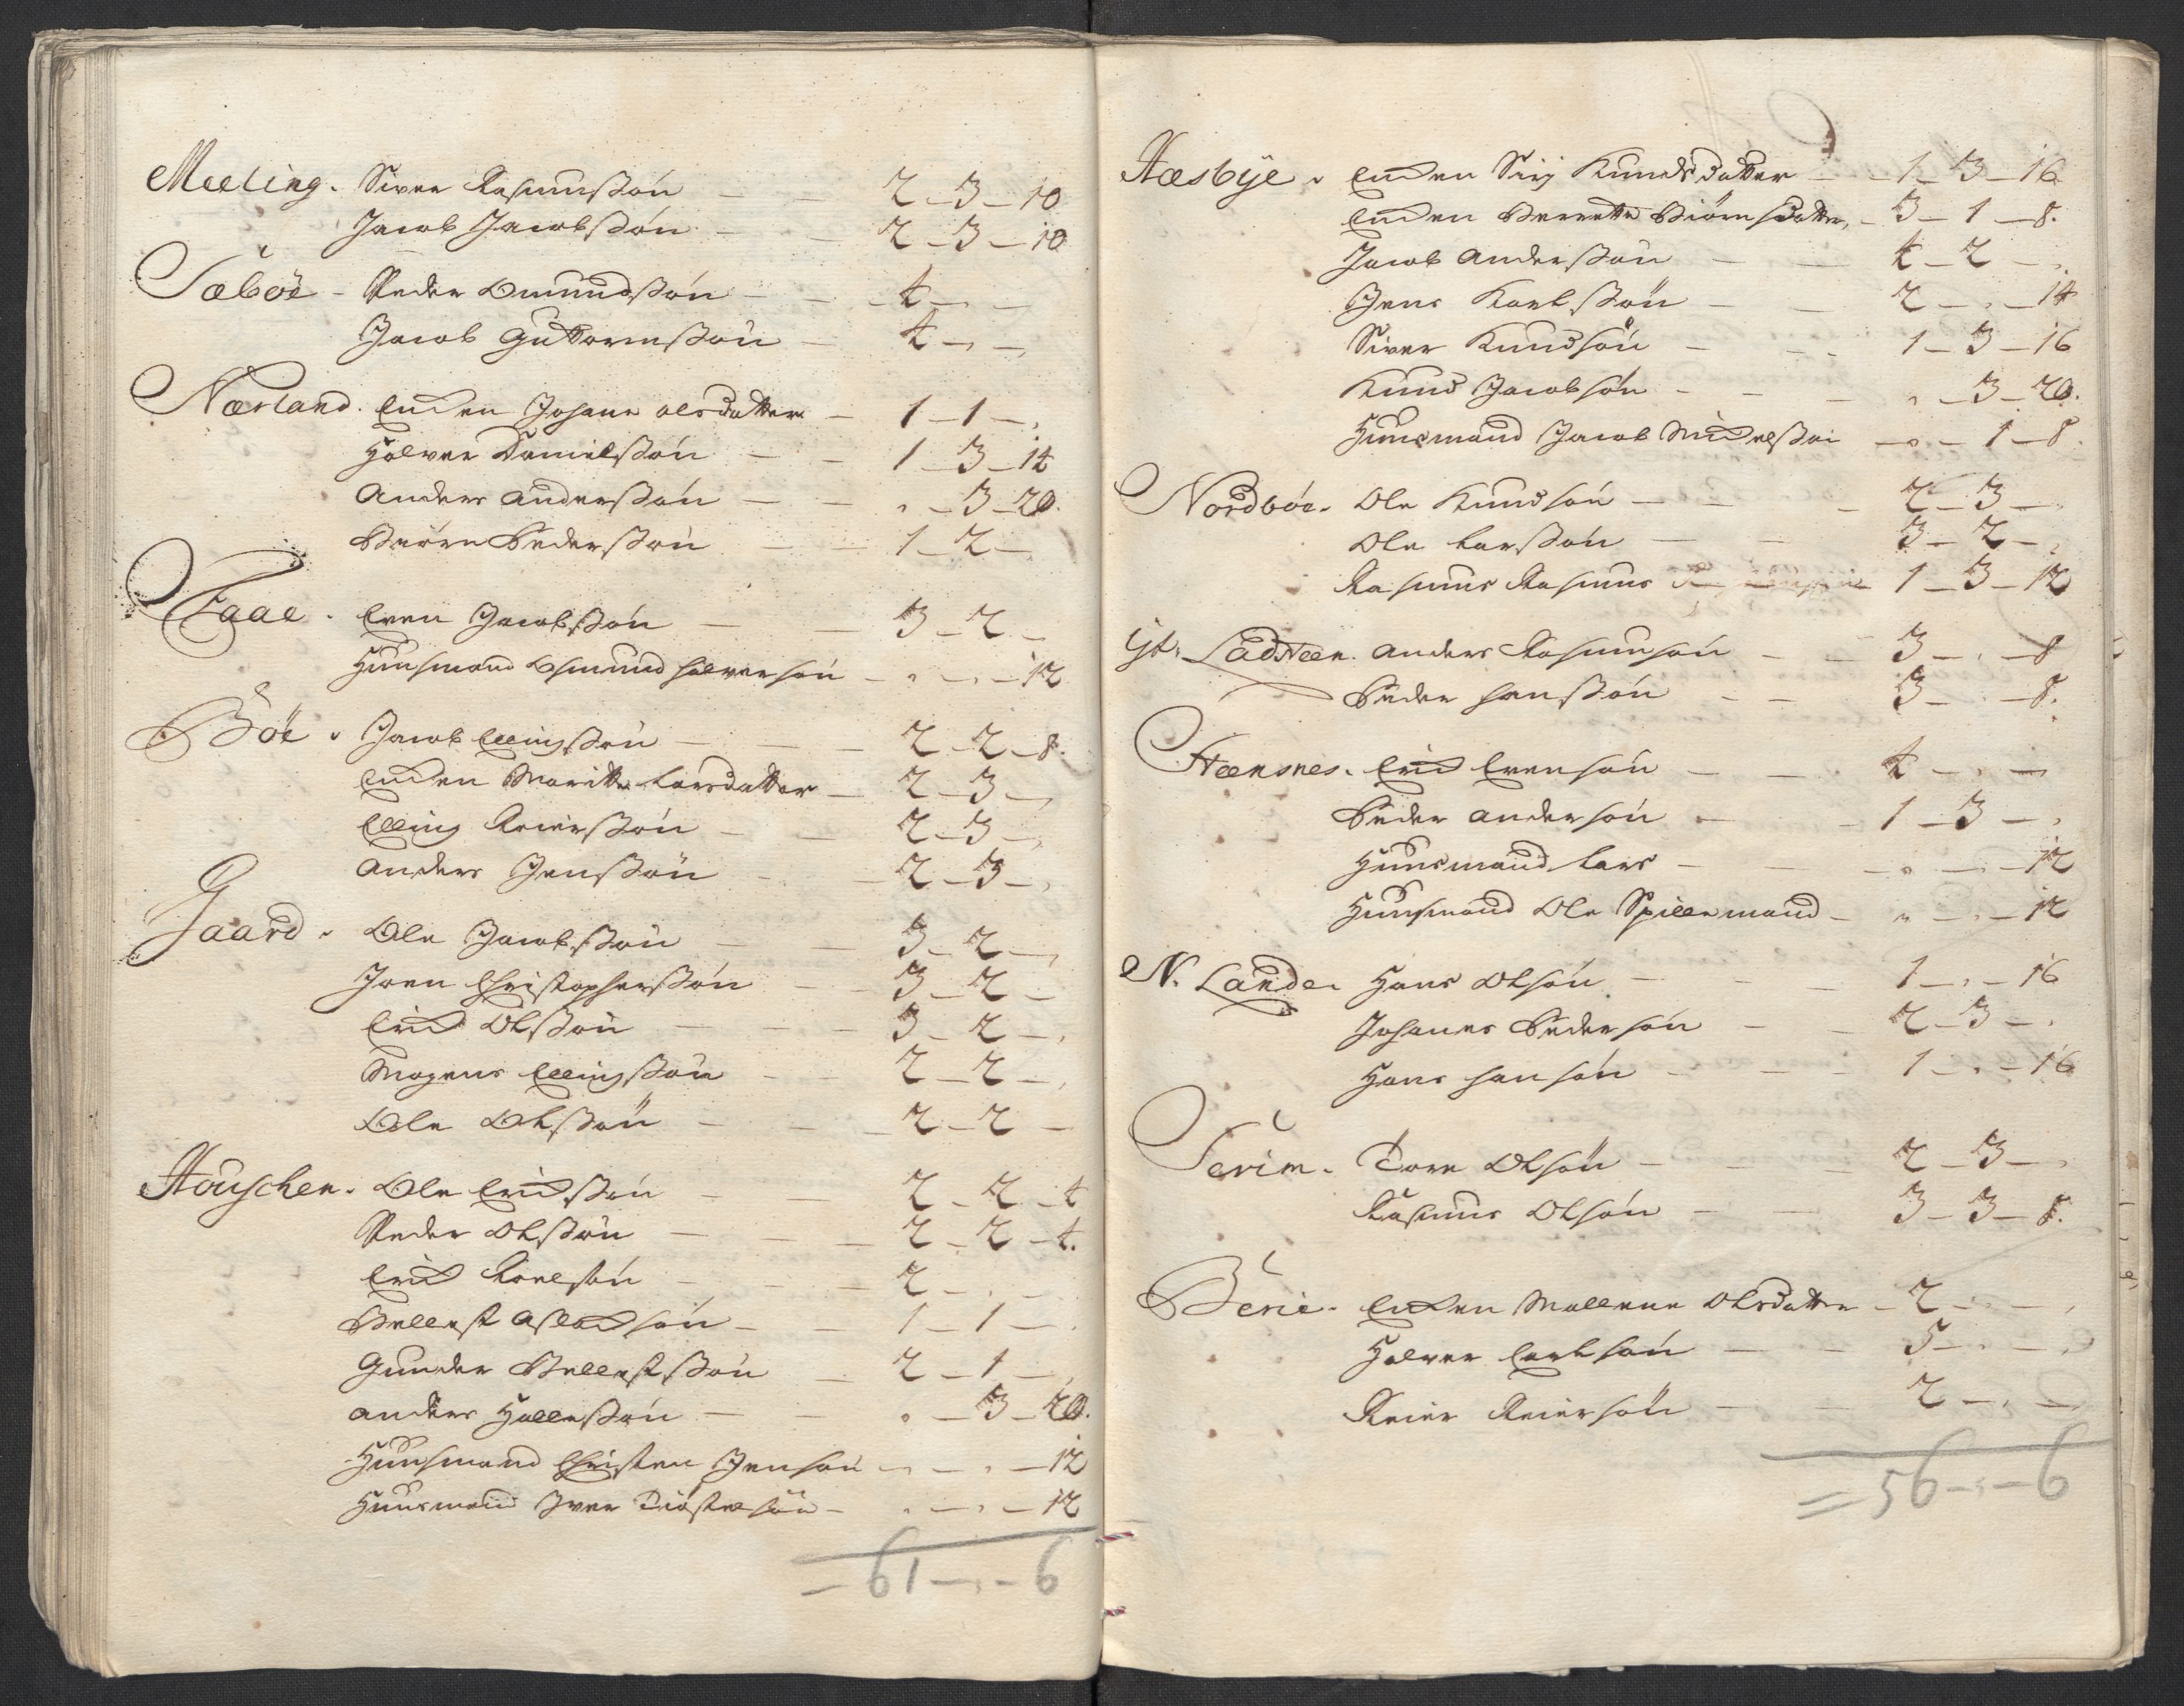 Meeling. Siver Rasmusßøn — — 2–3–10
Jacob Jacobsßøn — — 2–3–10
Sæbøe – Peder Omundsßøn — — 4 – „ –
Jacob Guttormsßøn — 4 – „ – „
Nærland. Encken Johane olsdatter — 1–1 – „
Halver Danielsßøn — — 1–3–14
Anders Andersßøn — — „ –3–20.
Biørn Pedersßøn — — 1–2 –
Taae. Even Jacobsßøn — — 3–2 –
Huusmand Osmund Halversøn — „ – „ –12
Bøe. Jacob Ellingsßøn — — 2–2–8.
Encken Maritte Larsdatter — 2–3 – „
Elling Reiersßøn — — 2–3 – „
Anders Jensßøn — — 2–3 – „
Gaard. Ole Jacobsßøn — — 3–2 – „
Joen Christophersßøn — — 3–2 –
Erick Olsßøn — — 3–2 – „
Mogens Ellingsßøn — — 2–2 – „
Ole Olsßøn — — 2–2 –
Houschen. Ole Ericksßøn — — 2–2–4
Peder Olsßøn — — 2–2–4.
Erick Roelsøn — — 2 – „ –
Bellest Aslacksøn — — 1–1 – „
Gunder Bellestsßøn — 2–1 – „
Anders Hallesßøn — — „ –3–20.
Huusmand Christen Jensøn — „ – „ –12
Huusmand Iver — „ – „ –12
= 61 – „ – 6
Hæsbye. Encken Sirj Knudsdatter — 1–3–16
Encken Berette Biørnsdatter, – 3–1–8.
Jacob Andersßøn — — 4–2 – „
Jens Karlsßøn — — 2 – „ –14
Siver Knudsøn — — 1–3–16
Knud Jacobsøn — — „ –3–20.
Huusmand Jacob Michelsßøn — „ –1–8.
Nordbøe. Ole Knudsøn — — 2–3 – „
Ole Larsßøn — — 3–2 – „
Rasmus Rasmus 1–3–12
Yt. Ladsteen. Anders Rasmusøn — — 3 – „ –8
Peder Hansßøn — — 3 – „ –8.
Hæensnes. Erick Evensøn — — 4 – „ –
Peder Andersøn — — 1–3 – „
Huusmand Lars — — „ – „ –12
Huusmand Ole Spillemand — „ – „ –12
N. Lande. Hans Olsøn — — 1 – „ –16
Johanes Pedersøn — — 2–3 – „
Hans Hansøn — — 1 – „ –16
Serim. Tore Olsøn — — 2–3 – „
Rasmus Olsøn — — 3–3–8.
Berie. Encken Mallene Olsdatter – 2 – „ – „
Halver Carlsøn — — 5 – „ – „
Reier Reiersøn — — 2 – „ –
= 56 – „ – 6